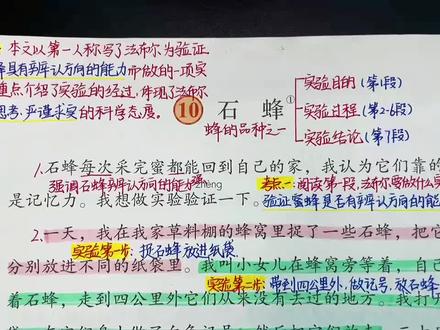 本文以第一人称写了法布尔为验证
蜂具有辨认方向的能力而做的一项实
重点介绍了实验的经过,体现了法布尔
思考、严谨求实的科学态度。
10 石蜂①
蜂的品种之一
实验目的(第1段)
实验过程(第2-6段)
实验结论(第7段)
1.石蜂每次采完蜜都能回到自己的家,我认为它们靠的
强调石蜂辨认方向的能力强
zheng
考点一:阅读第一段,法布尔要做什么实
是记忆力。我想做实验验证一下。
验证蜜蜂是否有辨认方向的能
2.一天,我在我家草料棚的蜂窝里捉了一些石蜂,把它
实验第一步:捉石蜂放进纸袋
分别放进不同的纸袋里。我叫小女儿在蜂窝旁等着,自己
实验第二步:带到四公里外,做记号,放石蜂
着石蜂,走到四公里外它们从来没有去过的地方。我打